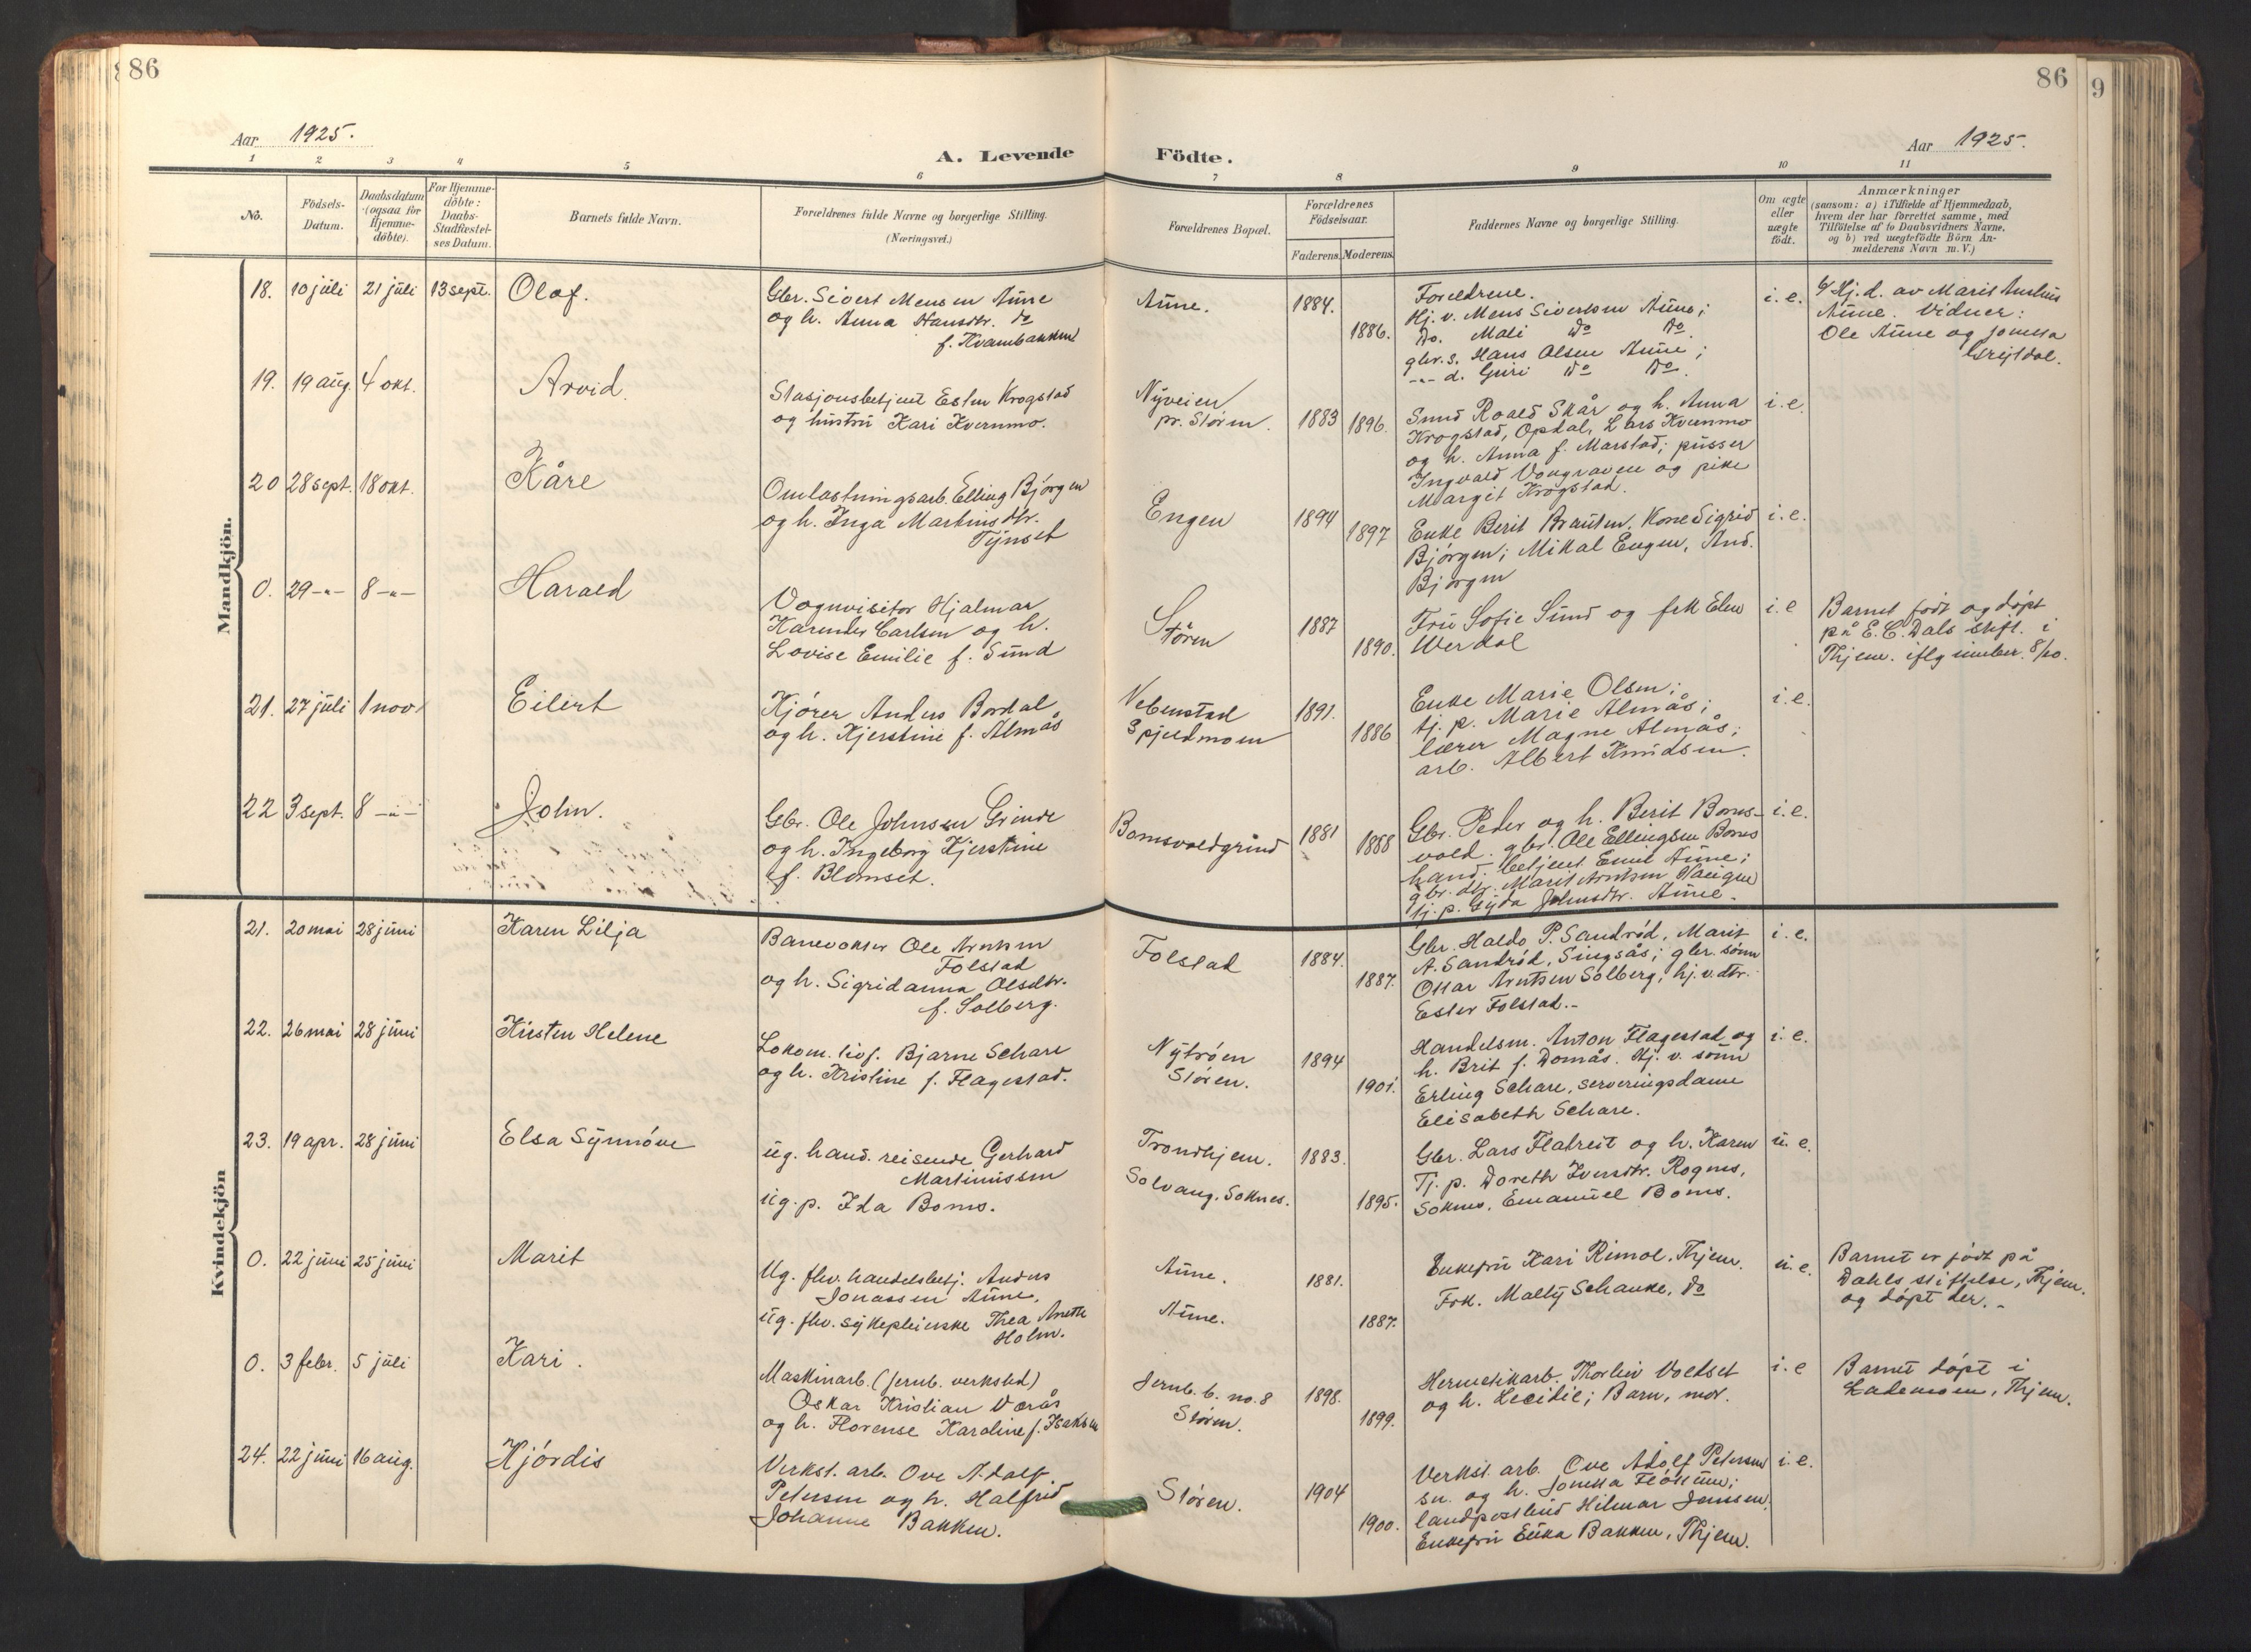 86
86
9
Aar 1925.
A. Levende Födte.
Aar 1925.
1 2 3 4 5 6 7 8 9 10 11
No.
Födsels-
Datum.
Daabsdatum
(ogsaa for
Hjemme-
döbte).
For Hjemme-
döbte:
Daabs-
Stadfæstel-
ses Datum.
Barnets fulde Navn.
Forældrenes fulde Navne og borgerlige Stilling.
(Næringsvei.)
Forældrenes Bopæl.
Forældrenes
Födselsaar.
Faderens. Moderens.
Faddernes Navne og borgerlige Stilling.
Om ægte
eller
uægte
födt.
Anmærkninger
(saasom: a) i Tilfælde af Hjemmedaab,
hvem der har forrettet samme, med
Tilföielse af to Daabsvidners Navne,
og b) ved uegtefödte Börn An-
melderens Navn m. V.)
Mandkjön.
18. 10 juli 21 juli 13 sept. Olaf.
Gbr. Sivert Mensen Aune
og h. Anna Hansdtr. do
f. Kvambakken
Aune.
1884.
1886.
Forældrene.
Hj. v. Mens Sivertsen Aune;
Do. Mali do do.
gbr. s. Hans Olsen Aune;
-"- d. Guri do do.
i. e.
Hj. d. av Marit
Aune. Vidner:
Ole Aune og Jonetta
19. 19 aug. 4 okt. Arvid.
Stasjonsbetjent Esten Krogstad
og hustru Kari Kvernmo.
Nyveien
pr. Støren.
1883 1896.
Smed Roald Skår og h. Anna
Krogstad, Opdal, Lars Kvernmo
og h. Anna f. Marstad; pusser
Ingvald Vongraven og pike
Margit Krogstad.
i. e.
20 28 sept. 18 okt. Kåre
Omlastningsarb. Elling Bjørgen
og h. Inga Martinsdtr.
Tynset
Engen
1894
1897
Enke Berit Brauten. Kone Sigrid
Bjørgen; Mikal Engen, And.
Bjørgen
i. e.
0. 29 -"- 8 -"- Harald
Vognvisitør Hjalmar
Karenius Carlsen og h.
Lovise Emilie f. Sund
Støren
1887
1890.
Fru Sofie Sund og frk Elen
Werdal
i. e
Barnet født og døpt
på E. C. Dals stift. i
Thjem. iflg innber. 8/10.
21. 27 juli 1 nov. Eilert
Kjører Anders Bordal
og h. Kjerstine f. Almås
Vebenstad
Spjeldmoen
1891.
1886
Enke Marie Olsen;
tj. p. Marie Almås;
lærer Magne Almås;
arb. Albert Knudsen.
i. e.
22 3 sept. 8 -"- John.
Gbr. Ole Johnsen Grinde
og h. Ingeborg Kjerstine
f. Blomset.
Bomsvoldgrind
1881
1888
Gbr. Peder og h. Berit Boms-
vold. gbr. Ole Ellingsen Boms
hand. betjent Emil Aune;
gbr. dtr. Marit Arntsen Haugen
tj. p. Gyda Johnsdtr. Aune.
i. e.
Kvindekjön
21. 20 mai 28 juni Karen Lilja
Banevokter Ole Arntsen
Folstad
og h. Sigridanna Olsdtr.
f. Solberg.
Folstad
1884.
1887.
Gbr. Haldo P. Sandrød, Marit
A. Sandrød, Singsås; gbr. sønn
Ottar Arntsen Solberg, hj. v. dtr.
Ester Folstad.-
i. e.
22. 26 mai 28 juni Kirsten Helene
Lokom. fyrb. Bjarne Schare
og h. Kristine f. Flagestad.
Nytrøen
Støren.
1894
1901.
Handelsm. Anton Flagestad og
h. Brit f. Domås. Hj. v. sønn
Erling Schare, serveringsdame
Elisabeth Schare.
i. e.
23. 19 apr. 28 juni Elsa Synnøve
ug. hand. reisende Gerhard
Martinussen
ug. p. Ida Boms.
Trondhjem.
Solvang. Soknes.
1883.
1895.
Gbr. Lars Flatreit og h. Karen
Tj. p. Doreth Iversdtr. Rognes,
Soknes, Emanuel Boms.
u. e.
0. 22 juni 25 juni Marit
Ug. fhv. handelsbetj. Anders
Jonassen Aune,
ug. fhv. sykepleierske Thea Anette
Holm.
Aune.
Aune.
1881.
1887.
Enkefru Kari Rimol, Thjem.
Frk. Mally Schanke, do
u. e.
Barnet er født på
Dahls stiftelse, Thjem.
og døpt der.-
0. 3 febr. 5 juli Kari.
Maskinarb. (jernb. verksted)
Oskar Kristian Vorås
og h. Florense Karoline f. Isaksen
Jernb. b. no. 8
Støren.
1898.
1899.
Hermetikarb. Thorleiv Voldset
og h. Lecidie; Barn, mor.
i. e
Barnet døpt i
Lademoen, Thjem.
24. 22 juni 16 aug. Hjørdis
Verkst. arb. Ove Adolf
Petersen og h. Halfrid
Johanne Bakken.
Støren.
1904
1900.
Verkst. arb. Ove Adolf Petersen
sn. og h. Jonetta Fløttum;
landpostbud Hilmar Jenssen.
Enkefru Erika Bakken, Thjem.
i. e.